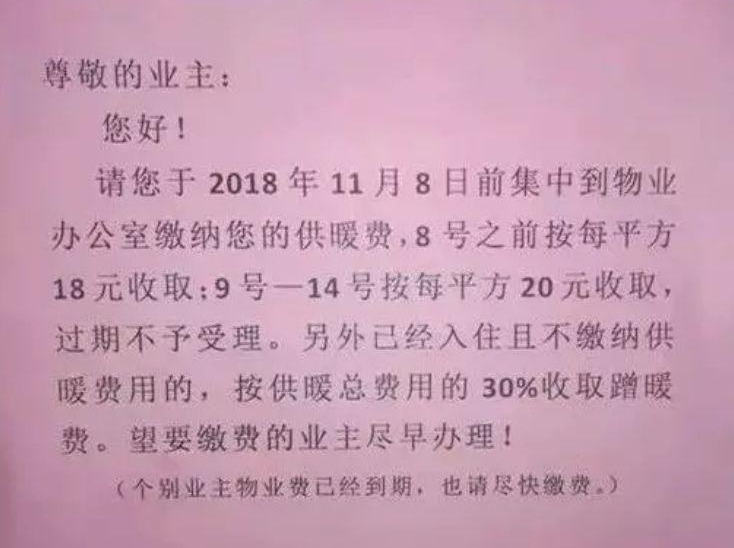 尊敬的业主：
您好！
请您于 2018 年 11 月 8 日前集中到物业
办公室缴纳您的供暖费，8 号之前按每平方
18 元收取；9 号—14 号按每平方 20 元收取，
过期不予受理。另外已经入住且不缴纳供
暖费用的，按供暖总费用的 30%收取蹭暖
费。望要缴费的业主尽早办理！
（个别业主物业费已经到期，也请尽快缴费。）